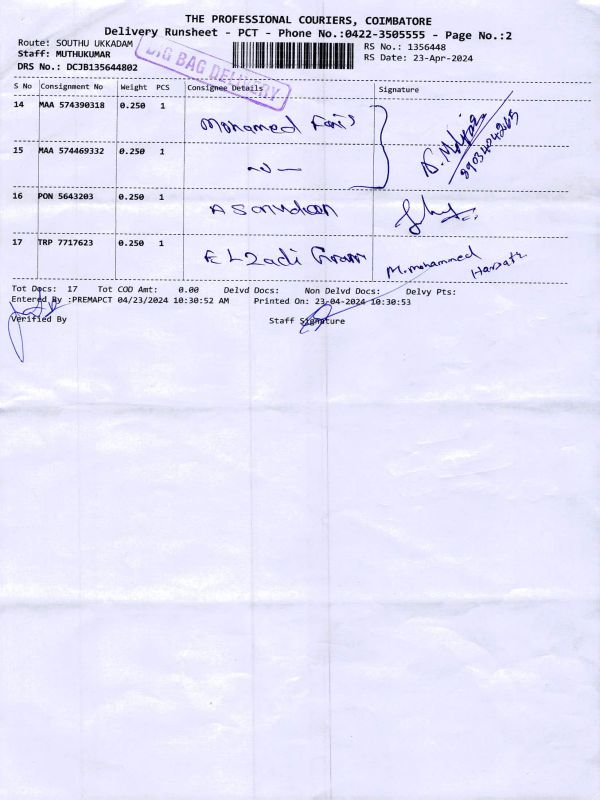 THE PROFESSIONAL COURIERS, COIMBATORE
Delivery Runsheet - PCT - Phone No.:0422-3505555 - Page No.:2
Route: SOUTHU UKKADAM
RS No.: 1356448
Staff: MUTHUKUMAR
RS Date: 23-Apr-2024
DRS No.: DCJB135644802
BIG BAG DELIVERY
S No Consignment No Weight PCS Consignee Details Signature
14 MAA 574390318 0.250 1
Mohamed
15 MAA 574469332 0.250 1
8903404265
16 PON 5643203 0.250 1
17 TRP 7717623 0.250 1
M.mohammed
Tot Docs: 17 Tot COD Amt: 0.00 Delvd Docs: Non Delvd Docs: Delvy Pts:
Entered By :PREMAPCT 04/23/2024 10:30:52 AM Printed On: 23-04-2024 10:30:53
Verified By Staff Signature